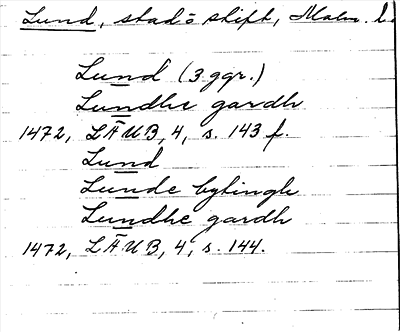 Lund, stad o stift, Malm. l.
Lund (3 ggr.)
Lundhe gardh
1472, LÄUB, 4, s. 143 f.
Lund
Lunde bytingh
Lundhe gardh
1472, LÄUB, 4, s. 144.